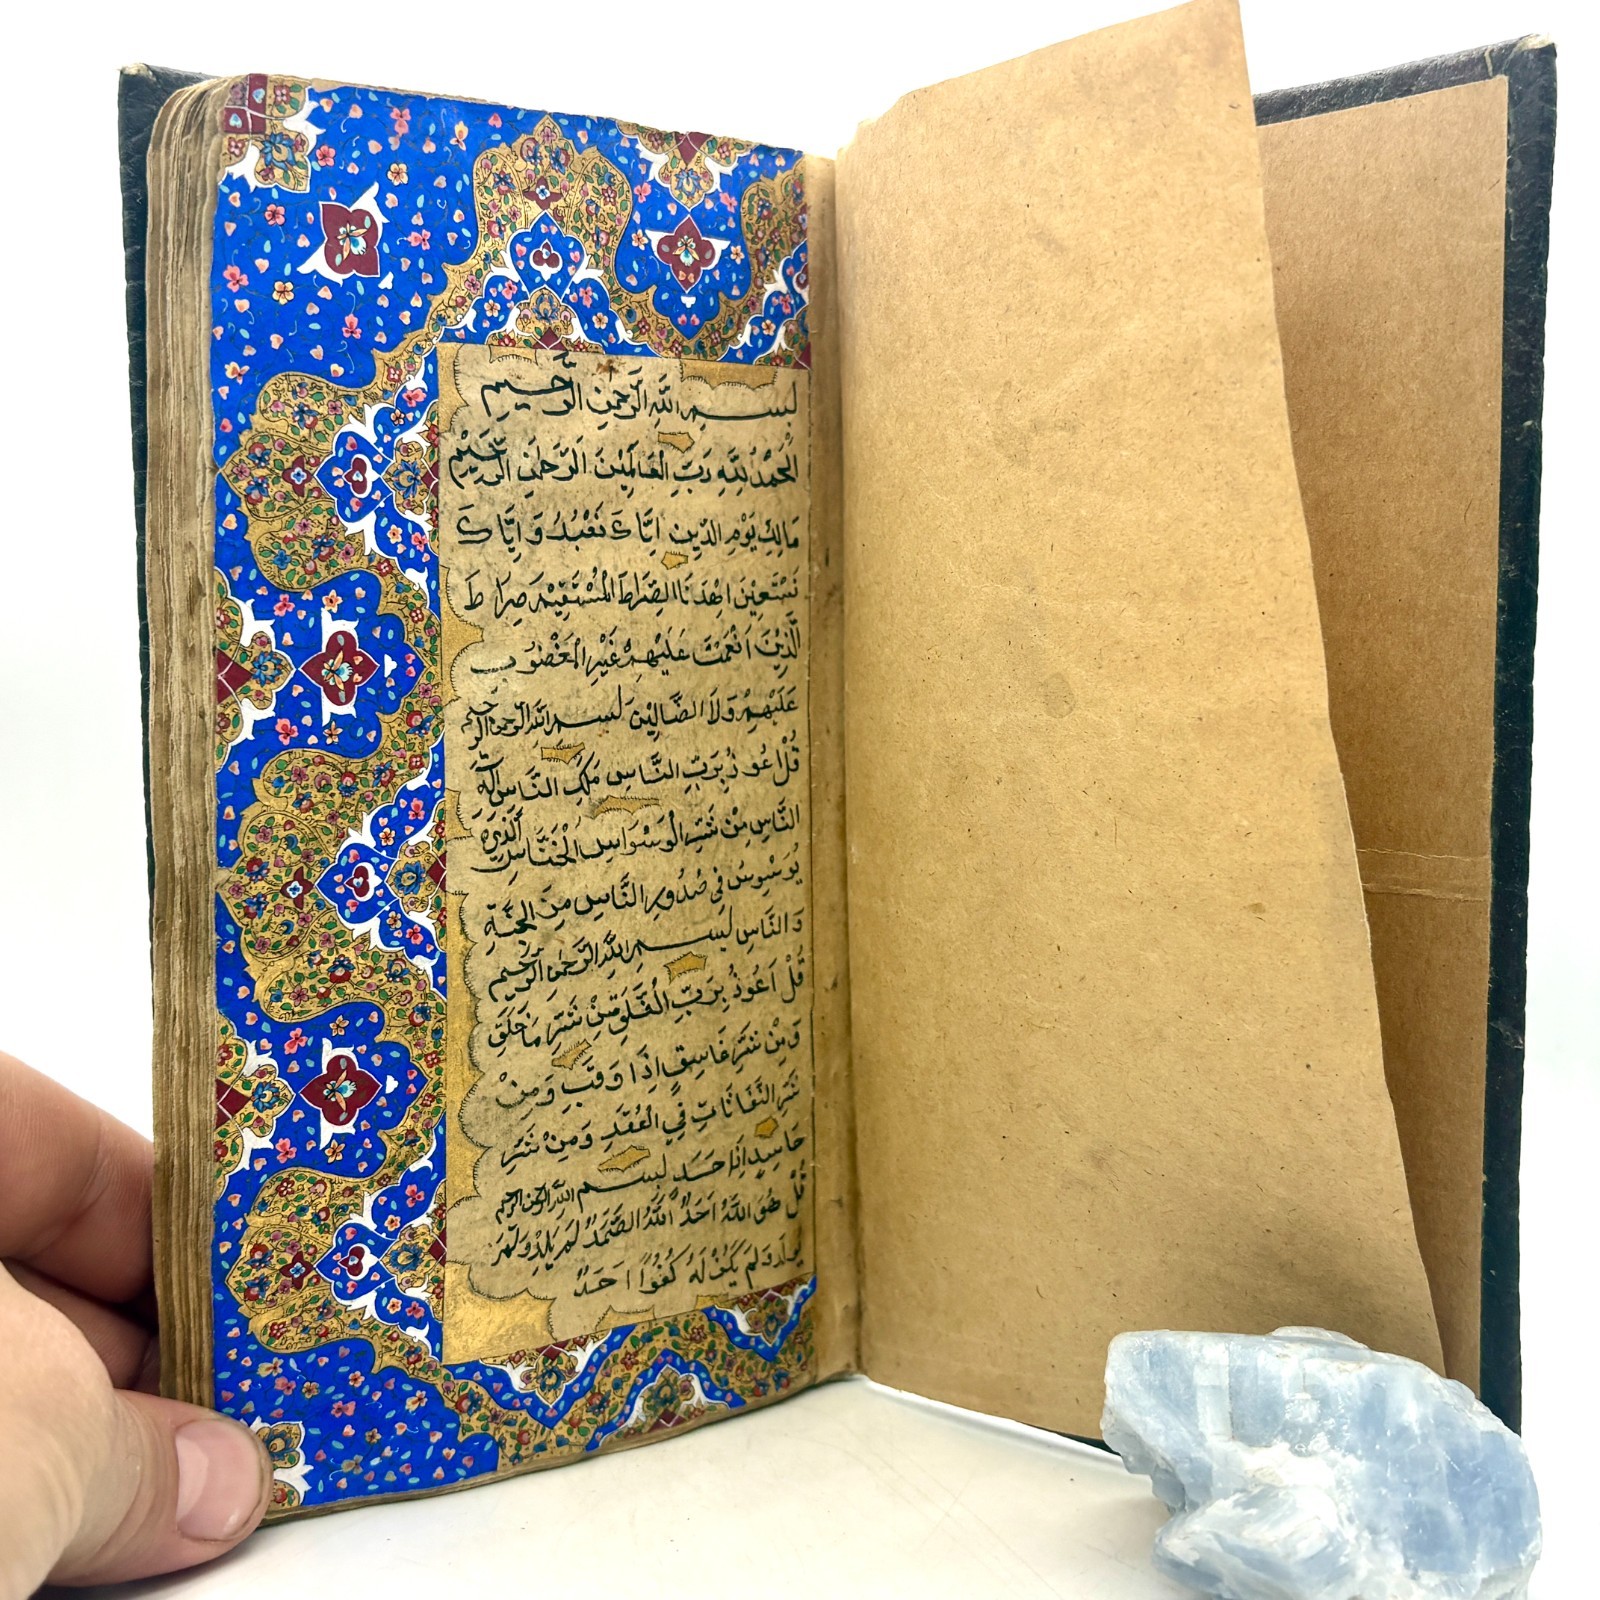 بسم الله الرحمن الرحيم
الحَمْدُ لِلّهِ رَبِّ الْعَالَمِيْنَ الرَّحْمٰنِ الرَّحِيْمِ
مَالِكِ يَوْمِ الدِّيْنِ اِيَّاكَ نَعْبُدُ وَ اِيَّاكَ
نَسْتَعِيْنَ اِهْدِنَا الصِّرَاطَ الْمُسْتَقِيْمَ صِرَاطَ
الَّذِيْنَ اَنْعَمْتَ عَلَيْهِمْ غَيْرِ الْمَغْضُوْبِ
عَلَيْهِمْ وَلاَ الضَّالِيْنَ بسم الله الرحمن الرحيم
قُلْ اَعُوْذُ بِرَبِّ النَّاسِ مَلِكِ النَّاسِ اِلٰهِ
النَّاسِ مِنْ شَرِّ الْوَسْوَاسِ الْخَنَّاسِ الَّذِيْ
يُوَسْوِسُ فِيْ صُدُوْرِ النَّاسِ مِنَ الْجِنَّةِ
وَ النَّاسِ بسم الله الرحمن الرحيم
قُلْ اَعُوْذُ بِرَبِّ الْفَلَقِ مِنْ شَرِّ مَا خَلَقَ
وَ مِنْ شَرِّ غَاسِقٍ اِذَا وَقَبَ وَ مِنْ
شَرِّ النَّفَّاثَاتِ فِي الْعُقَدِ وَ مِنْ شَرِّ
حَاسِدٍ اِذَا حَسَدَ بسم الله الرحمن الرحيم
قُلْ هُوَ اللّٰهُ اَحَدٌ اَللّٰهُ الصَّمَدُ لَمْ يَلِدْ وَ لَمْ
يُوْلَدْ وَ لَمْ يَكُنْ لَهُ كُفُوًا اَحَدٌ